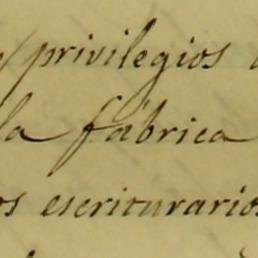 privilegios
la fabrica
os escriturarios